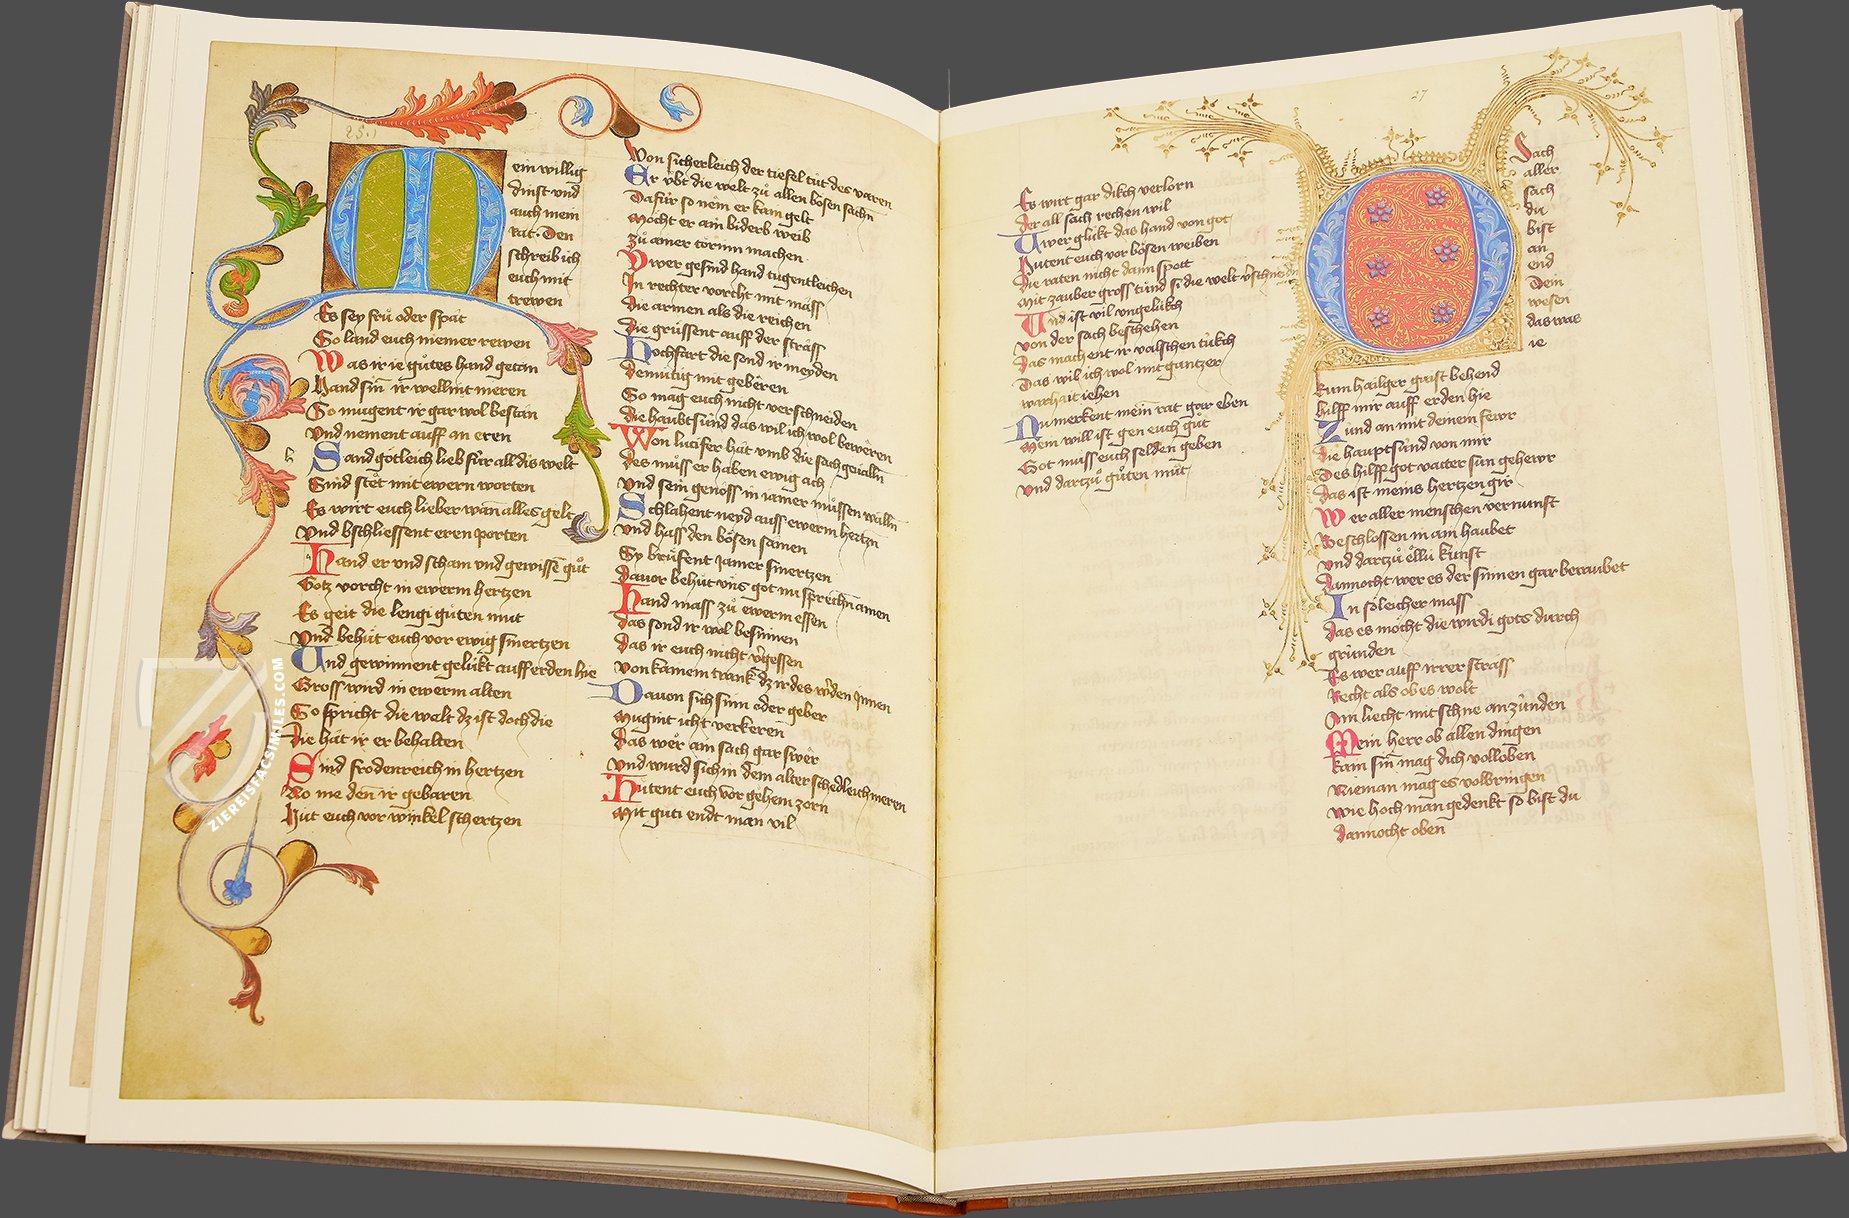 Mein willig
dinst und
auch mein
rat. Den
schreib ich
euch mit
trewen
Es sey fru oder spat
So land euch niemer rewen
Was ir ie gůtes hand getan
Hand sin̄ ir wellint meren
So mugent ir gar wol bestan
Und nement auff an eren
Sand gotleich lieb für all dis welt
Sind stet mit ewern worten
Es wirt euch lieber wān alles gelt
Und bschliessent eren porten
Hand er und scham vnd gewissē gůt
Gotz vorcht in ewerm hertzen
Es geit die lengi gůten mut
Und behüt euch vor ewig smertzen
Und gewinnent gelükt auff erden hie
Gross wird in ewerm alten
So spricht die welt dz ist doch die
Die hat ir er behalten
Sind frödenreich in hertzen
wo me den̄ ir gebaren
Hüt euch vor winkel schertzen
Von sicherleich der tiefel tůt des varen
Er übt die welt zů allen bösen sachn̄
Dafür so nem er kain gelt
Möcht er ain biderb weib
Zů ainer törinn machen
Uwer gesind hand tugentleichen
In rechter vorcht mit mass
Die armen als die reichen
Die grüssent auff der strass
Hochfart die sond ir meyden
Demütig mit geberen
So mag euch nicht verschneiden
Die haubtsünd das wil ich wol beweren
Won lucifer hat vmb die sach geialln̄
Des muss er haben ewig ach
Und sein genoss in iamer müssen walln̄
Schlahent neyd auss ewerm hertzn̄
Und hass den bösen samen
Sy brüfent Jamer smertzen
Davor behüt vns got nu sprechn̄ amen
Hand mass zů ewerm essen
Das sond ir wol besinnen
Das ir euch nicht v̄gessen
Von kainem trank dz ir des w̄den Innen
Davon sich sinn oder geber
Mugint icht verkeren
Das wer ain sach gar swer
Und wurd sich in dem alter schedleich meren
Hütent euch vor gehem zorn
Mit güti endt man vil
27
Es wirt gar dikch verlorn
Der all sach rechen wil
Uwer glükt das hand von got
Hütent euch vor bösen weiben
Die raten nicht dann spott
Mit zauber gross sünd si die welt v̄schneidn̄
Und ist vil vnglükch
Von der sach beschehen
Das machent ir valschen tükch
Das wil ich wol mit gantzer
warhait iehen
Nu merkent mein rat gar eben
Mein will ist gen euch gůt
Got muss euch selden geben
Und dartzů gůten můt
Sach
aller
sach
du
bist
an
end
Dein
wesen
das was
ie
kum hailger gaist behend
hilff mir auff erden hie
Zund an mit deinem fewr
Die hauptsünd von mir
Des hilff got vatter sun gehewr
Das ist meins hertzen gir
Wer aller menschen vernunft
Beschlossen in aim haubet
Und dartzů elli kunst
Dannocht wer es der sinnen gar beraubet
In söleicher mass
Das es möcht die wirdi gots durch
gründen
Es wer auff irrer strass
Recht als ob es wolt
Ain liecht mit schne anzünden
Mein herr ob allen dingen
Kain sin̄ mag dich volloben
Nieman mag es volbringen
Wie hoch man gedenkt so bist du
dannocht oben
ZIEREISFACSIMILES.COM